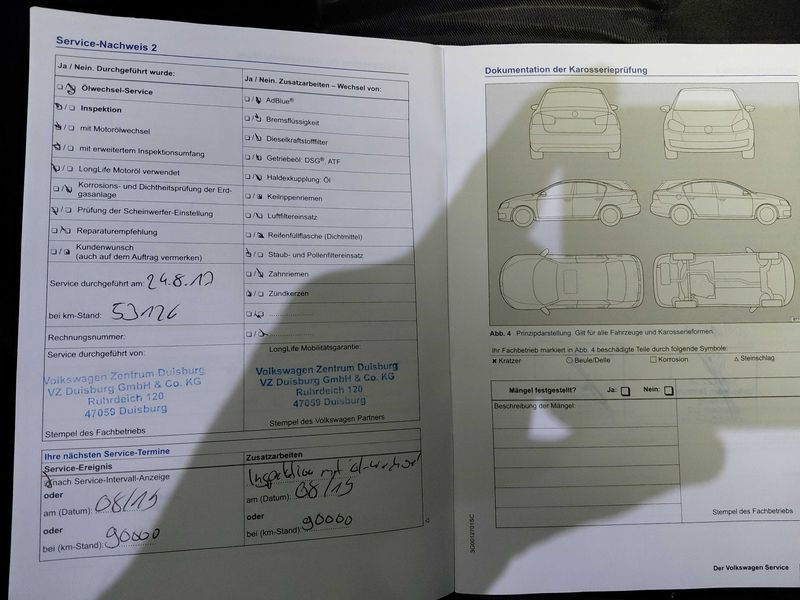 Service-Nachweis 2
Ja / Nein. Durchgeführt wurde:
Ölwechsel-Service
Inspektion
mit Motorölwechsel
mit erweitertem Inspektionsumfang
LongLife Motoröl verwendet
Korrosions- und Dichtheitsprüfung der Erd-
gasanlage
Prüfung der Scheinwerfer-Einstellung
Reparaturempfehlung
Kundenwunsch
(auch auf dem Auftrag vermerken)
Service durchgeführt am: 24.8.17
bei km-Stand: 53126
Rechnungsnummer:
Service durchgeführt von:
Volkswagen Zentrum Duisburg
VZ Duisburg GmbH & Co. KG
Ruhrdeich 120
47059 Duisburg
Stempel des Fachbetriebs
Ja / Nein. Zusatzarbeiten – Wechsel von:
AdBlue®
Bremsflüssigkeit
Dieselkraftstofffilter
Getriebeöl: DSG®, ATF
Haldexkupplung: Öl
Keilrippenriemen
Luftfiltereinsatz
Reifenfüllflasche (Dichtmittel)
Staub- und Pollenfiltereinsatz
Zahnriemen
Zündkerzen
LongLife Mobilitätsgarantie:
Volkswagen Zentrum Duisburg
VZ Duisburg GmbH & Co. KG
Ruhrdeich 120
47059 Duisburg
Stempel des Volkswagen Partners
Ihre nächsten Service-Termine
Service-Ereignis
nach Service-Intervall-Anzeige
oder
am (Datum): 08/19
oder
bei (km-Stand): 90000
Zusatzarbeiten
Inspektion mit
am (Datum): 08/19
oder
bei (km-Stand): 90000
Dokumentation der Karosserieprüfung
Abb. 4 Prinzipdarstellung. Gilt für alle Fahrzeuge und Karosserieformen.
Ihr Fachbetrieb markiert in Abb. 4 beschädigte Teile durch folgende Symbole:
× Kratzer ○ Beule/Delle □ Korrosion △ Steinschlag
Mängel festgestellt? Ja: Nein:
Beschreibung der Mängel:
Stempel des Fachbetriebs
3G0012701SC
Der Volkswagen Service